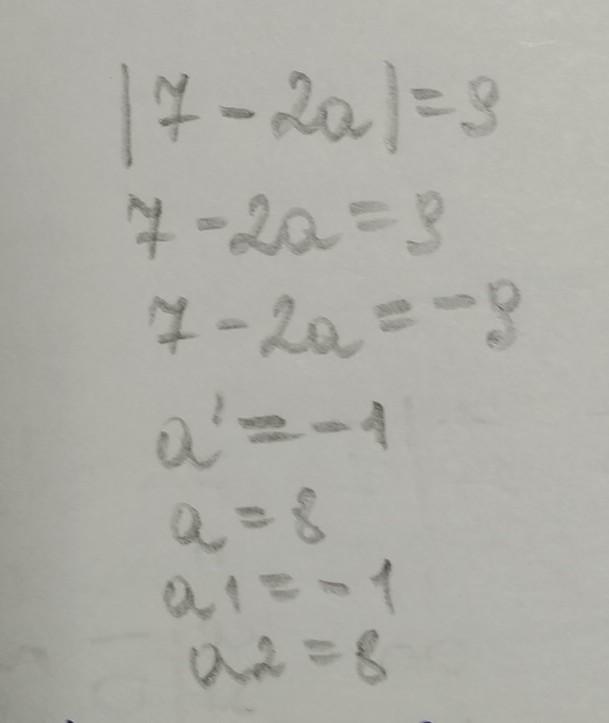 |7 - 2a| = 9
7 - 2a = 9
7 - 2a = -9
a' = -1
a = 8
a1 = -1
a2 = 8